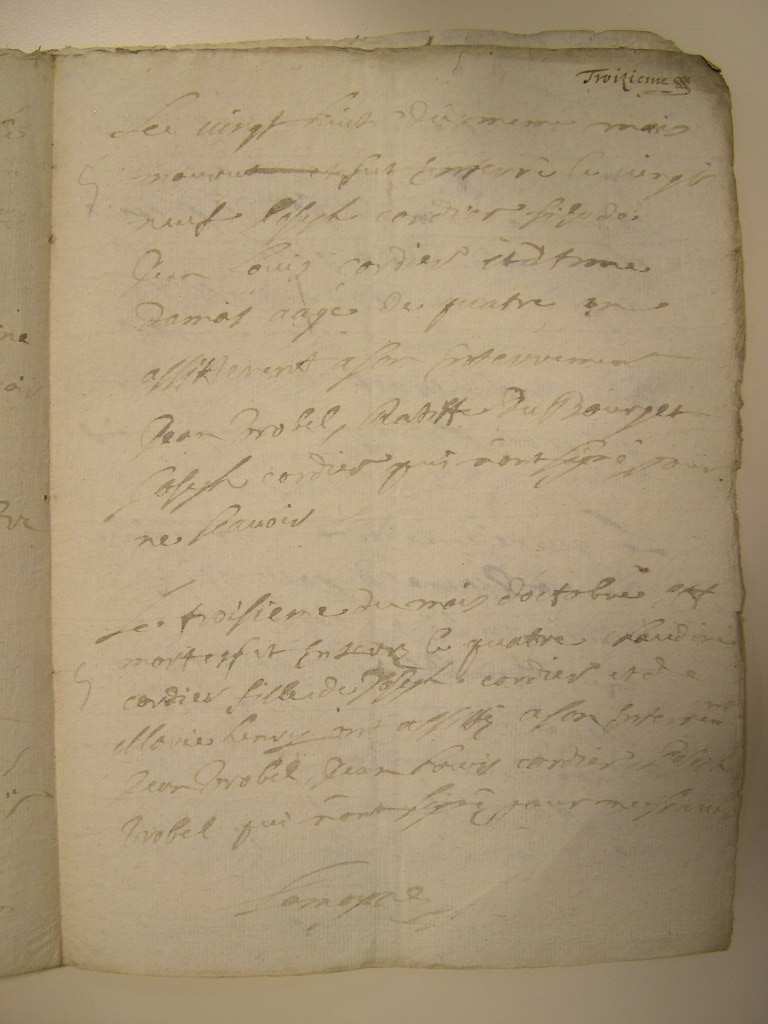 Troizieme
Le vingt huit du meme mois
mourut et fut enterré le vingt
neuf Joseph cordier fils de
Jean louis cordier et d'Anne
Damas aagé de quatre ans
assisterent a son enterrement
Jean Trobel, Du Bourget
Joseph cordier qui n'ont signé pour
ne scavoir
Le troisieme du mois d'octobre est
morte et fut enterré le quatre Claudine
cordier fille de Joseph cordier et de
Marie henry ont assisté a son enterrement
Jean Trobel, Jean Louis cordier, Joseph
Trobel qui n'ont signé pour ne scavoir